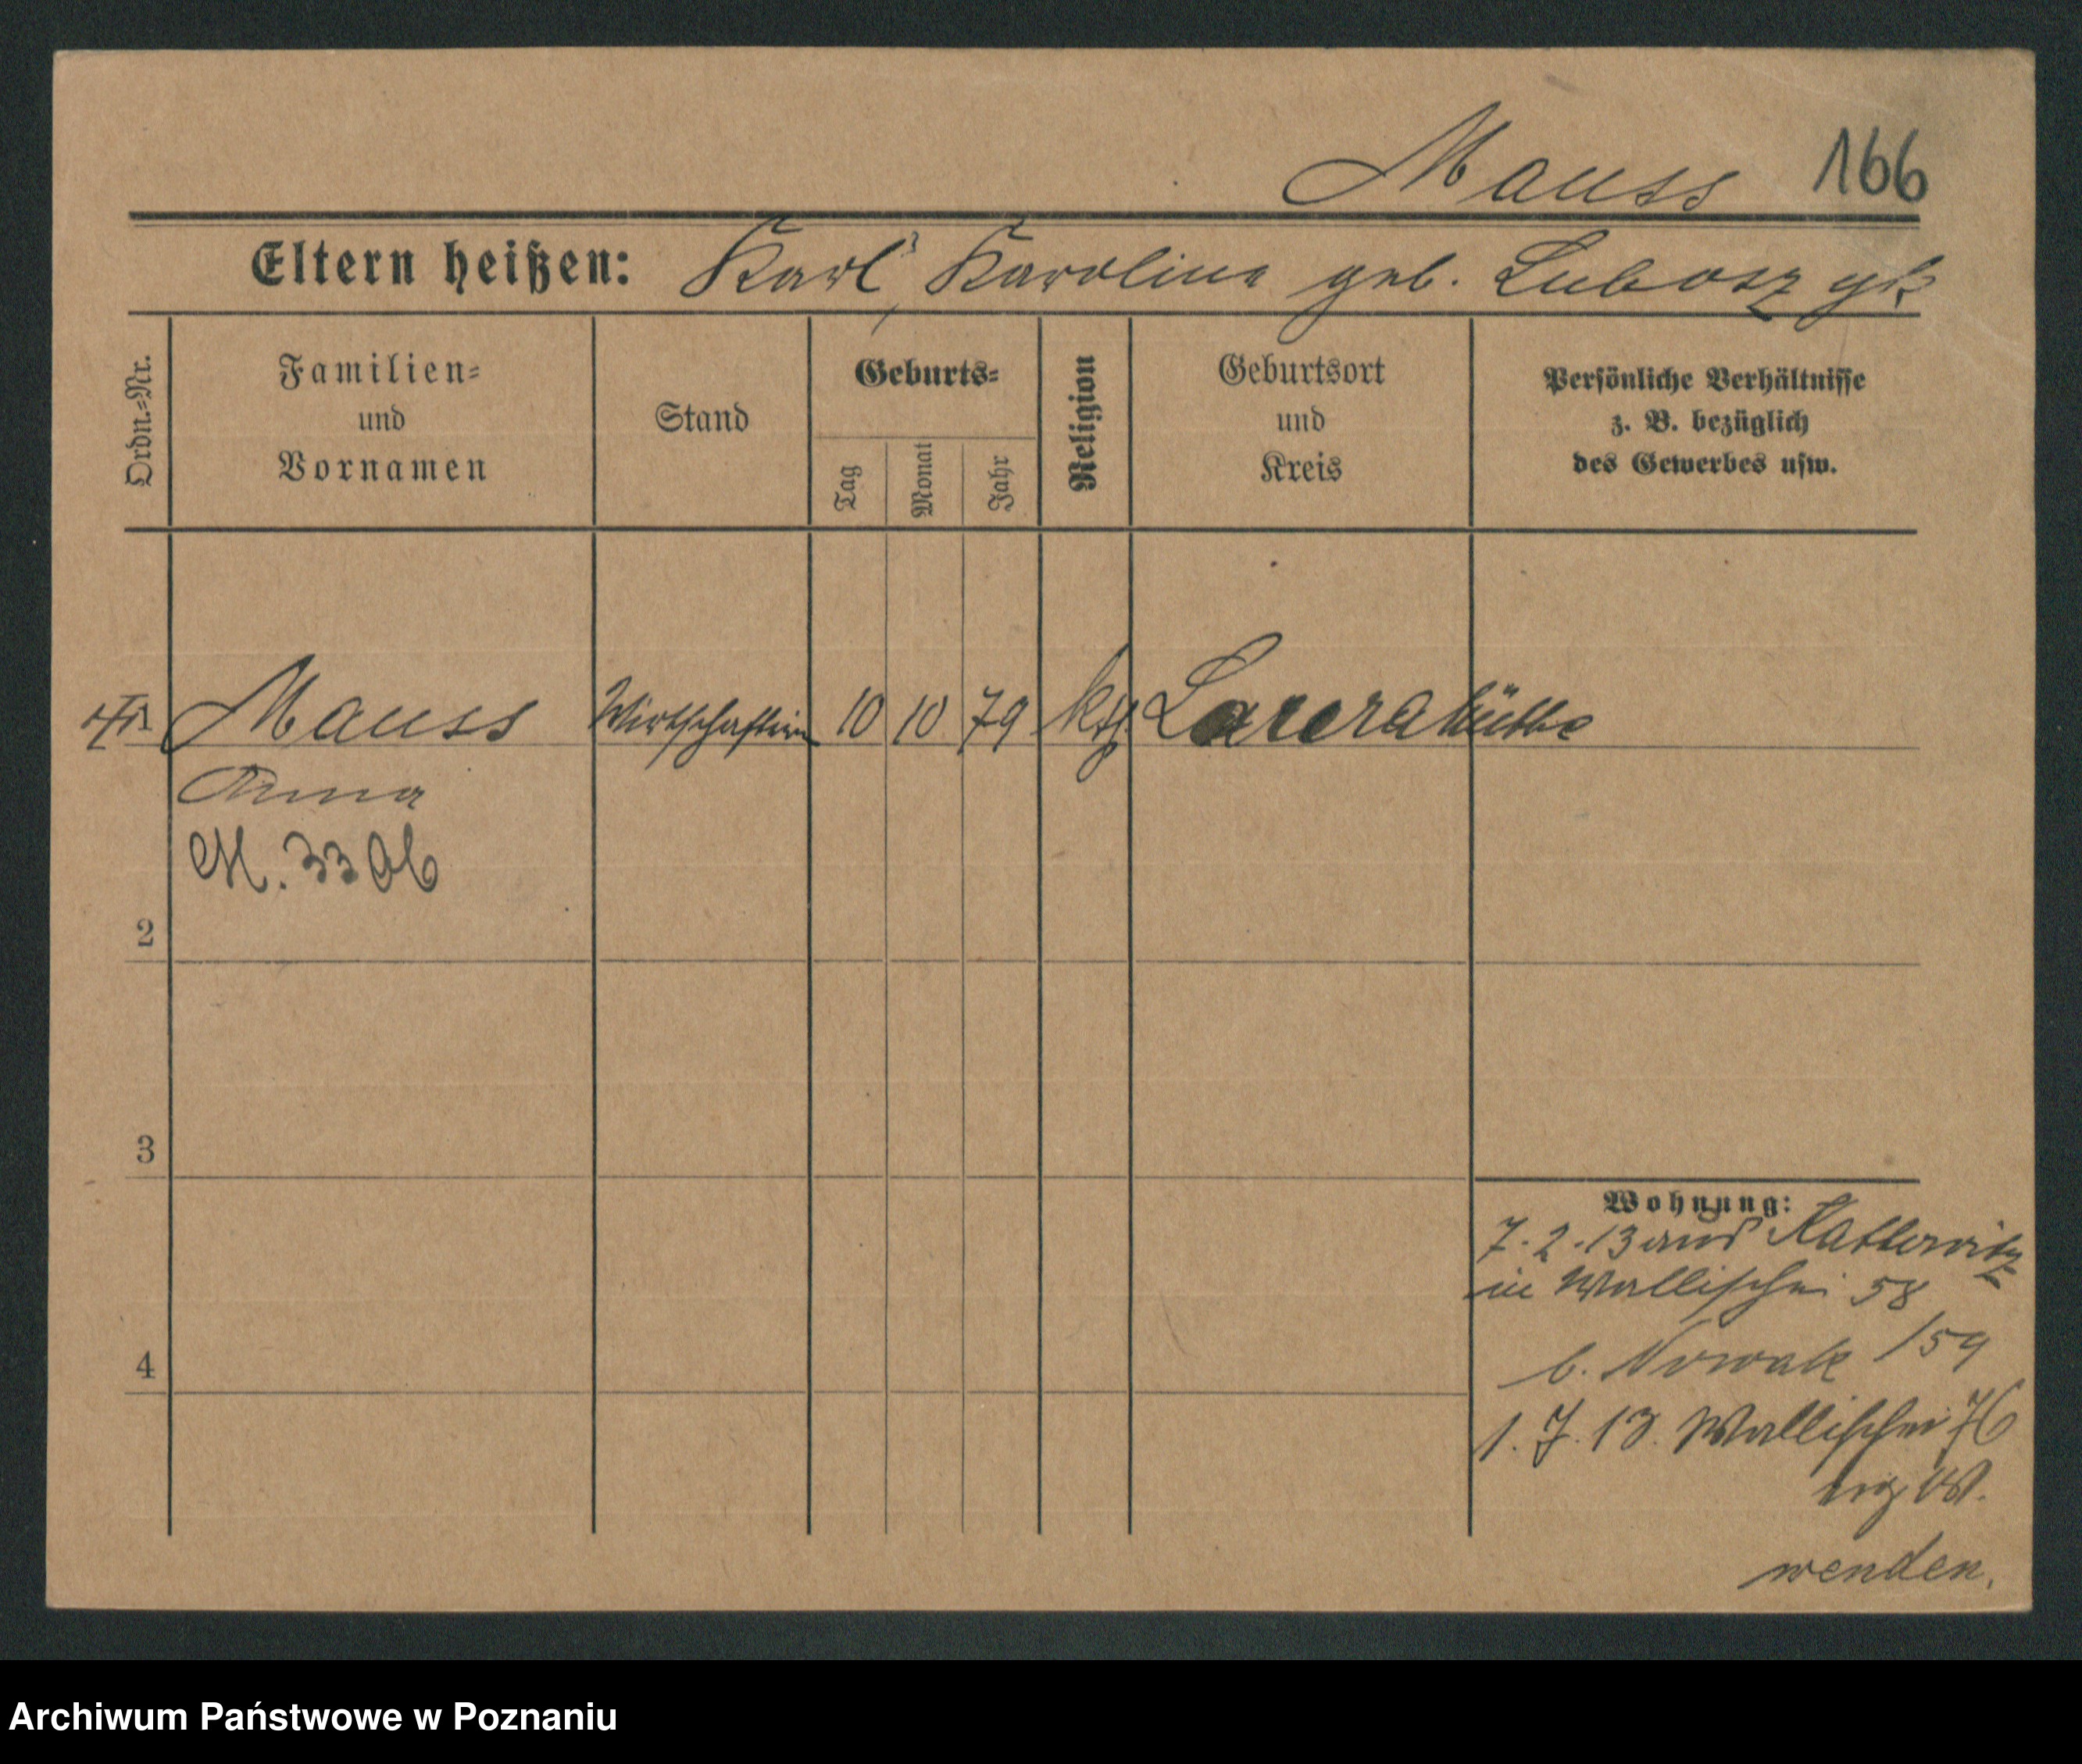 Mauss 166
Eltern heißen: Karl, Karoline geb. Luboszyk
Ordn.-Nr.
Familien-
und
Vornamen
Stand
Geburts-
Tag
Monat
Jahr
Religion
Geburtsort
und
Kreis
Persönliche Verhältnisse
z. B. bezüglich
des Gewerbes usw.
1 Mauss Wirtschafterin 10 10 79 kth Laurahütte
Anna
M. 3306
2
3
4
Wohnung:
7.2.13 aus Kattowitz
in Wallischei 58
b. Nowak /59
1.7.13. Wallischei 76
wenden.
Archiwum Państwowe w Poznaniu